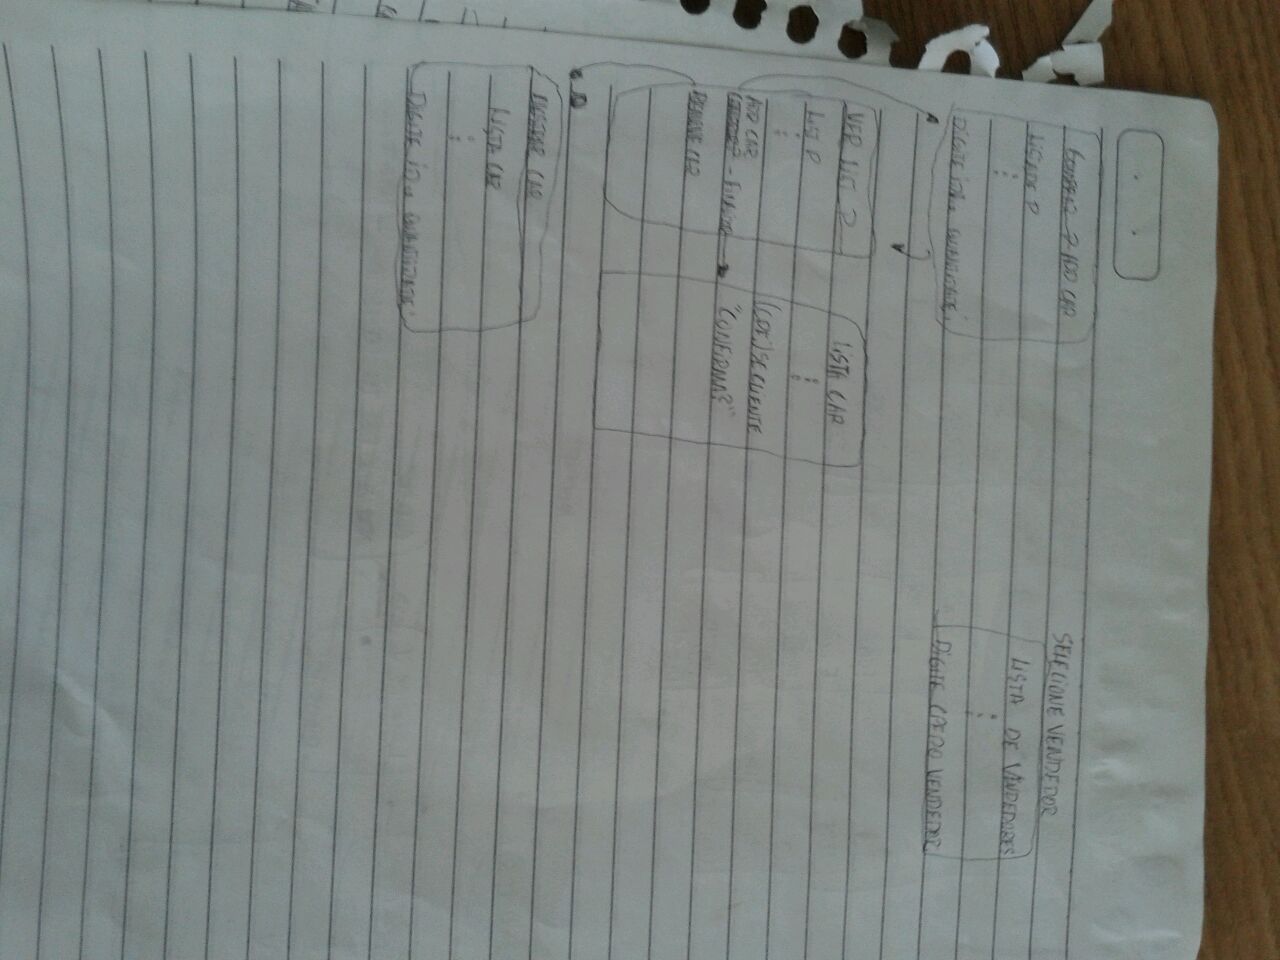 ADD CAR
LISTA DE P
DIGITE ID e QUANTIDADE:
SELECIONE VENDEDOR
LISTA DE VENDEDORES
DIGITE CPF DO VENDEDOR
VER LIST P
LIST P
ADD CAR
- FINALIZAR
REMOVE CAR
LISTA CAR
(CPF) SE CLIENTE
"CONFIRMA?"
MOSTRAR CAR
LISTA CAR
DIGITE ID e QUANTIDADE: